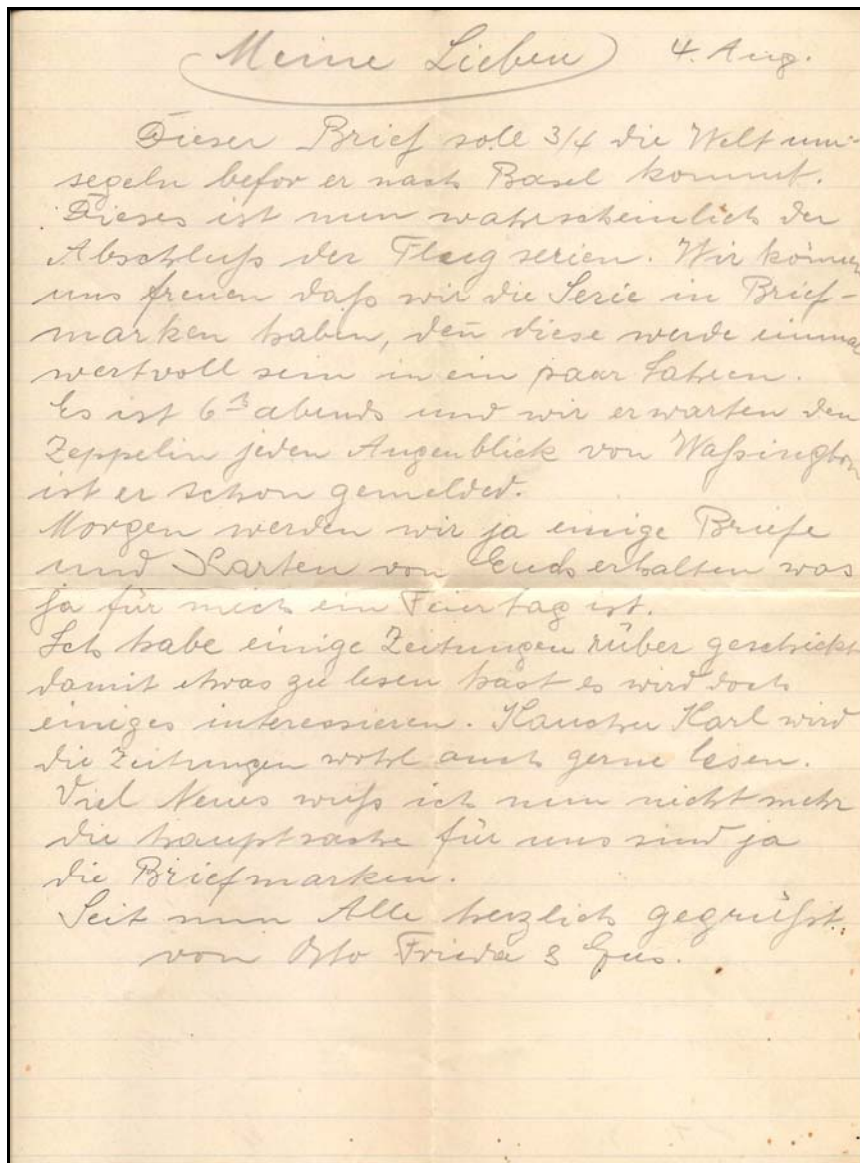 Meine Lieben 4. Aug.
Dieser Brief soll 3/4 die Welt um-
segeln befor er nach Basel kommt.
Dieses ist nun wahrscheinlich der
Abschluß der Flug serien. Wir können
uns freuen daß wir die Serie in Brief-
marken haben, den̄ diese werde einmal
wertvoll sein in ein paar Jahren.
Es ist 6 h abends und wir erwarten den
Zeppelin jeden Augenblick von Waßington
ist er schon gemeldet.
Morgen werden wir ja einige Briefe
und Karten von Euch erhalten was
ja für mich ein Feiertag ist.
Ich habe einige Zeitungen rüber geschickt
damit etwas zu lesen hast es wird doch
einiges interessieren. Karl wird
die Zeitungen wohl auch gerne lesen.
Viel Neues wuß ich nun nicht mehr
die hauptsache für uns sind ja
die Briefmarken.
Seit nun Alle herzlich gegrüßt
von Otto Frieda & Gus.